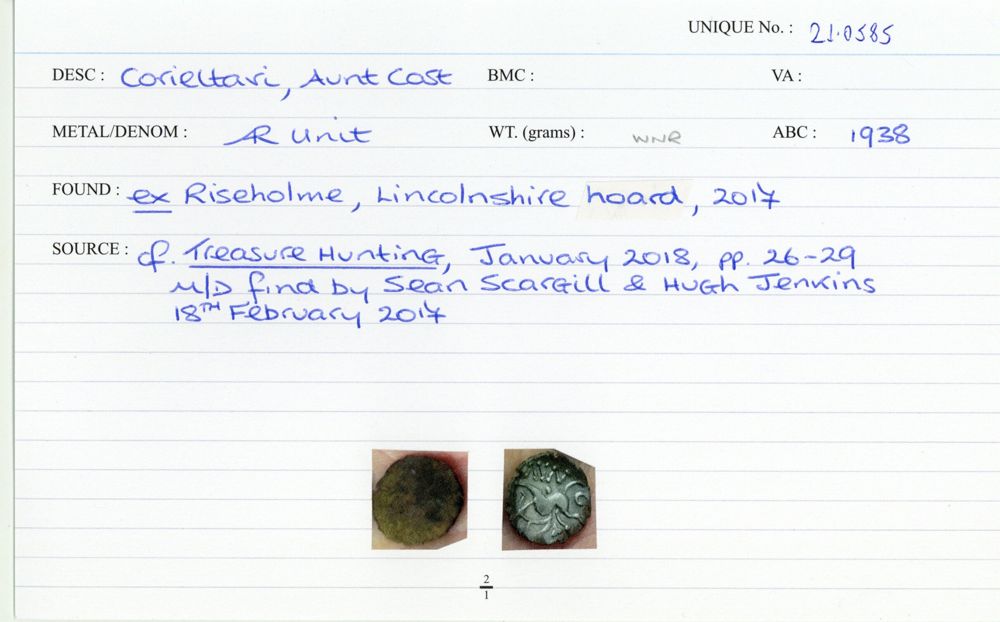 UNIQUE No. : 21.0585
DESC : Corieltavi, Aunt Cost BMC : VA :
METAL/DENOM : AR Unit WT. (grams) : WNR ABC : 1938
FOUND : ex Riseholme, Lincolnshire hoard, 2017
SOURCE : cf. Treasure Hunting, January 2018, pp. 26-29
M/D find by Sean Scargill & Hugh Jenkins
18TH February 2017
2
1